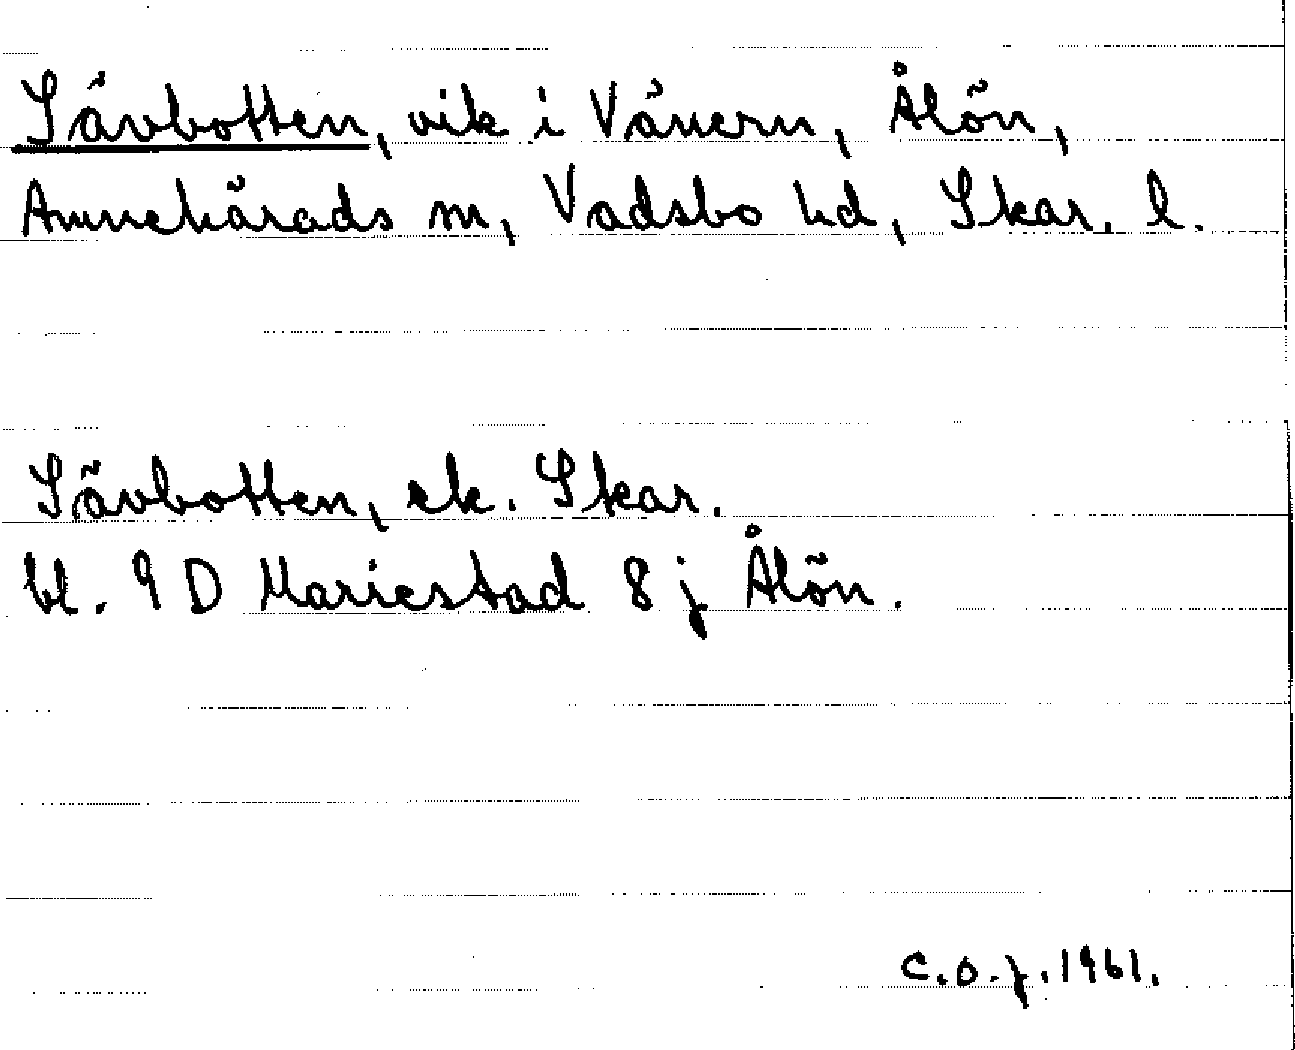 Sävbotten, vik i Vänern, Ålön,
Amnehärads sn, Vadsbo hd, Skar. l.
Sävbotten, ek. Skar.
bl. 9 D Mariestad 8 j Ålön.
C.O.J. 1961.